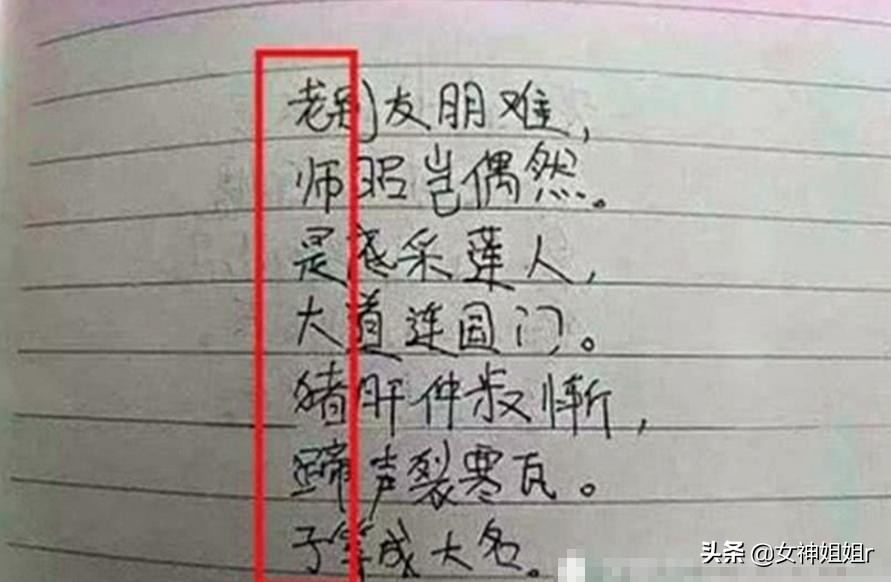 老别友朋难,
师昭岂偶然。
是底采莲人,
大道连国门。
猪肝仲叔惭,
蹄声裂寒瓦。
子等成大名。
头条 @女神姐姐r